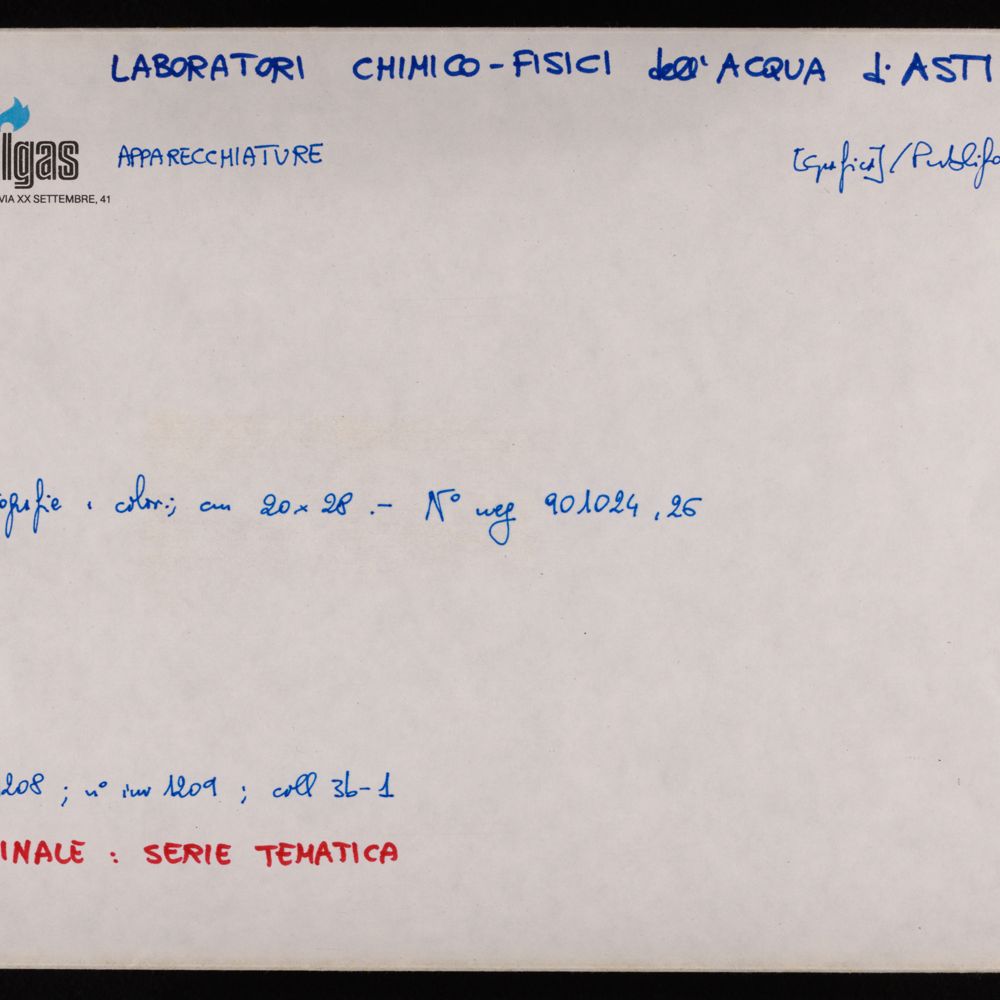 LABORATORI CHIMICO-FISICI dell'ACQUA d'ASTI
lgas
VIA XX SETTEMBRE, 41
APPARECCHIATURE
[Grafica] / Publifo
ografie a colori; cm 20x28 .- N° neg 901024, 26
208 ; n° inv 1209 ; coll 3b-1
INALE : SERIE TEMATICA